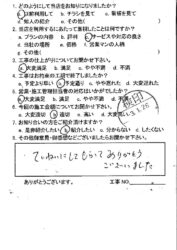 1.どのようにして当店をお知りになりましたか？
a.新聞折込 b.チラシを見て c.看板を見て
d.知人の紹介 e.その他( )
2.当店を利用するにあたって重視したことは何ですか？
a.プランの内容 b.評判 c.サービスやお店の豊さ
d.当社の場所 e.価格 f.営業マンの人柄
g.その他( )
3.工事の仕上がりについてお聞かせ下さい。
a.大変満足 b.満足 c.やや不満 d.不満
4.工事はお約束の工期で終了しましたか？
a.予定より早い b.予定通り c.やや遅れた d.大変遅れた
5.営業・施工管理担当者の対応はいかがでしたか？
a.大変満足 b.満足 c.やや不満 d.不満
6.今回の施工金額についてお聞かせ下さい。
a.大変適切 b.適切 c.高い d.大変高い
7.お知り合いの方をご紹介頂けますか？
a.是非紹介したい b.紹介したい c.分からない d.したくない
8.その他御意見・御感想などございましたらお聞かせ下さい。
ていねいにしてもらって ありがとう
ございました
ありがとうございます。 工事NO